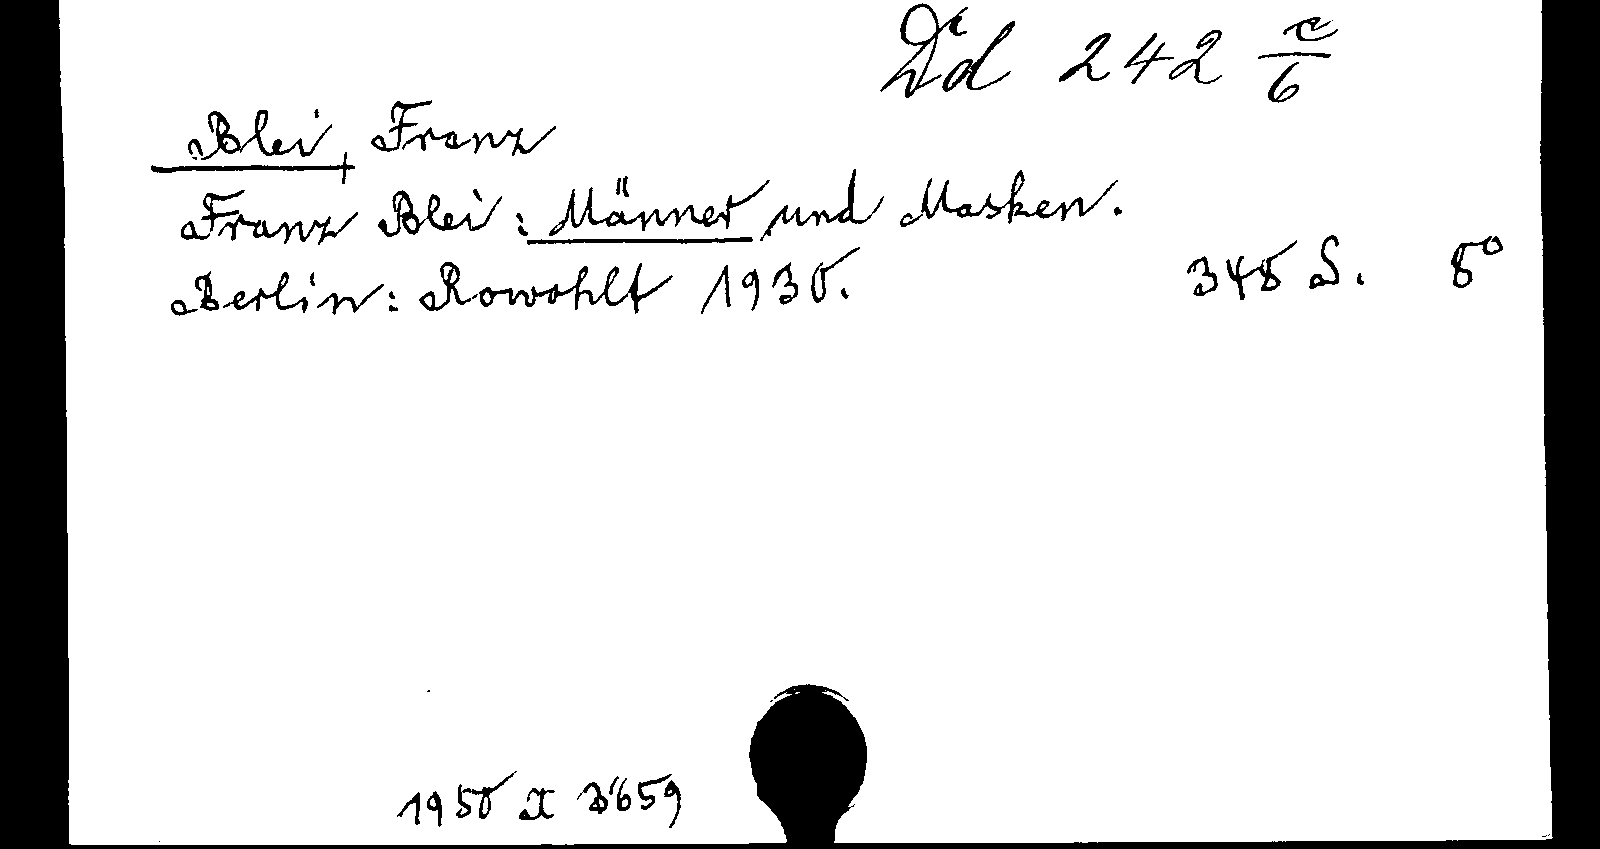 Dd 242 c/6
Blei, Franz
Franz Blei: Männer und Masken.
Berlin: Rowohlt 1930. 348 S. 8°
1950 x 3659